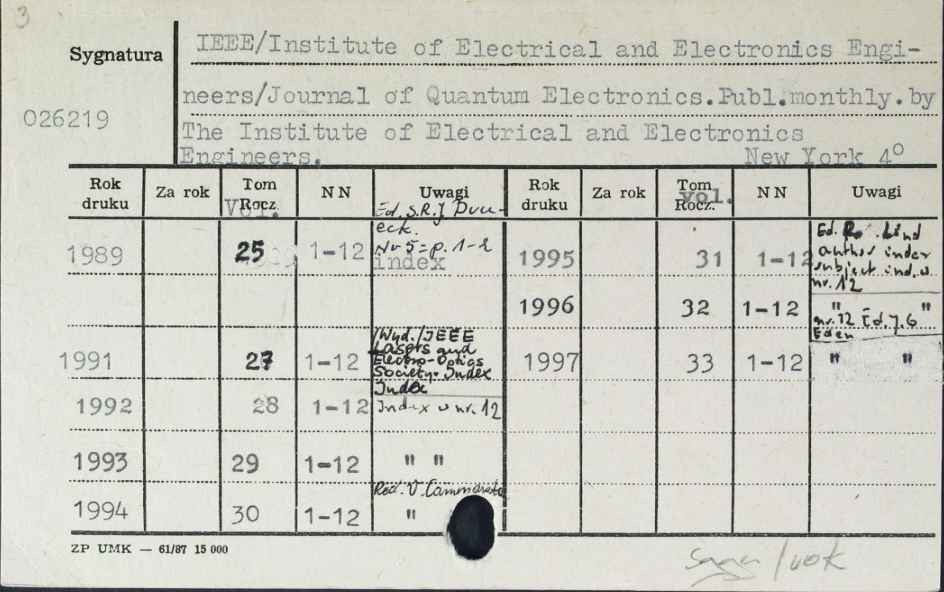 3
Sygnatura
IEEE/Institute of Electrical and Electronics Engi-
neers/Journal of Quantum Electronics.Publ.monthly.by
026219
The Institute of Electrical and Electronics
Engineers. New York 4°
Rok druku Za rok Tom Rocz. Vol. N N Uwagi Rok druku Za rok Tom Rocz. vol. N N Uwagi
Ed. S.R.J
eck.
Nr 5 = p. 1-2
1989 25 1-12 index
1995 31 1-12 Ed. Lind
author index
subject ind. w
nr. 12
1996 32 1-12 " "
nr. 12 Ed. J. G
Eden
/Wyd./IEEE
Lasers and
1991 27 1-12 Electro-Optics
Society. Index
Index
1997 33 1-12 " "
1992 28 1-12 Index w nr. 12
1993 29 1-12 " "
Red. V. Cammarata
1994 30 1-12 "
ZP UMK — 61/87 15 000